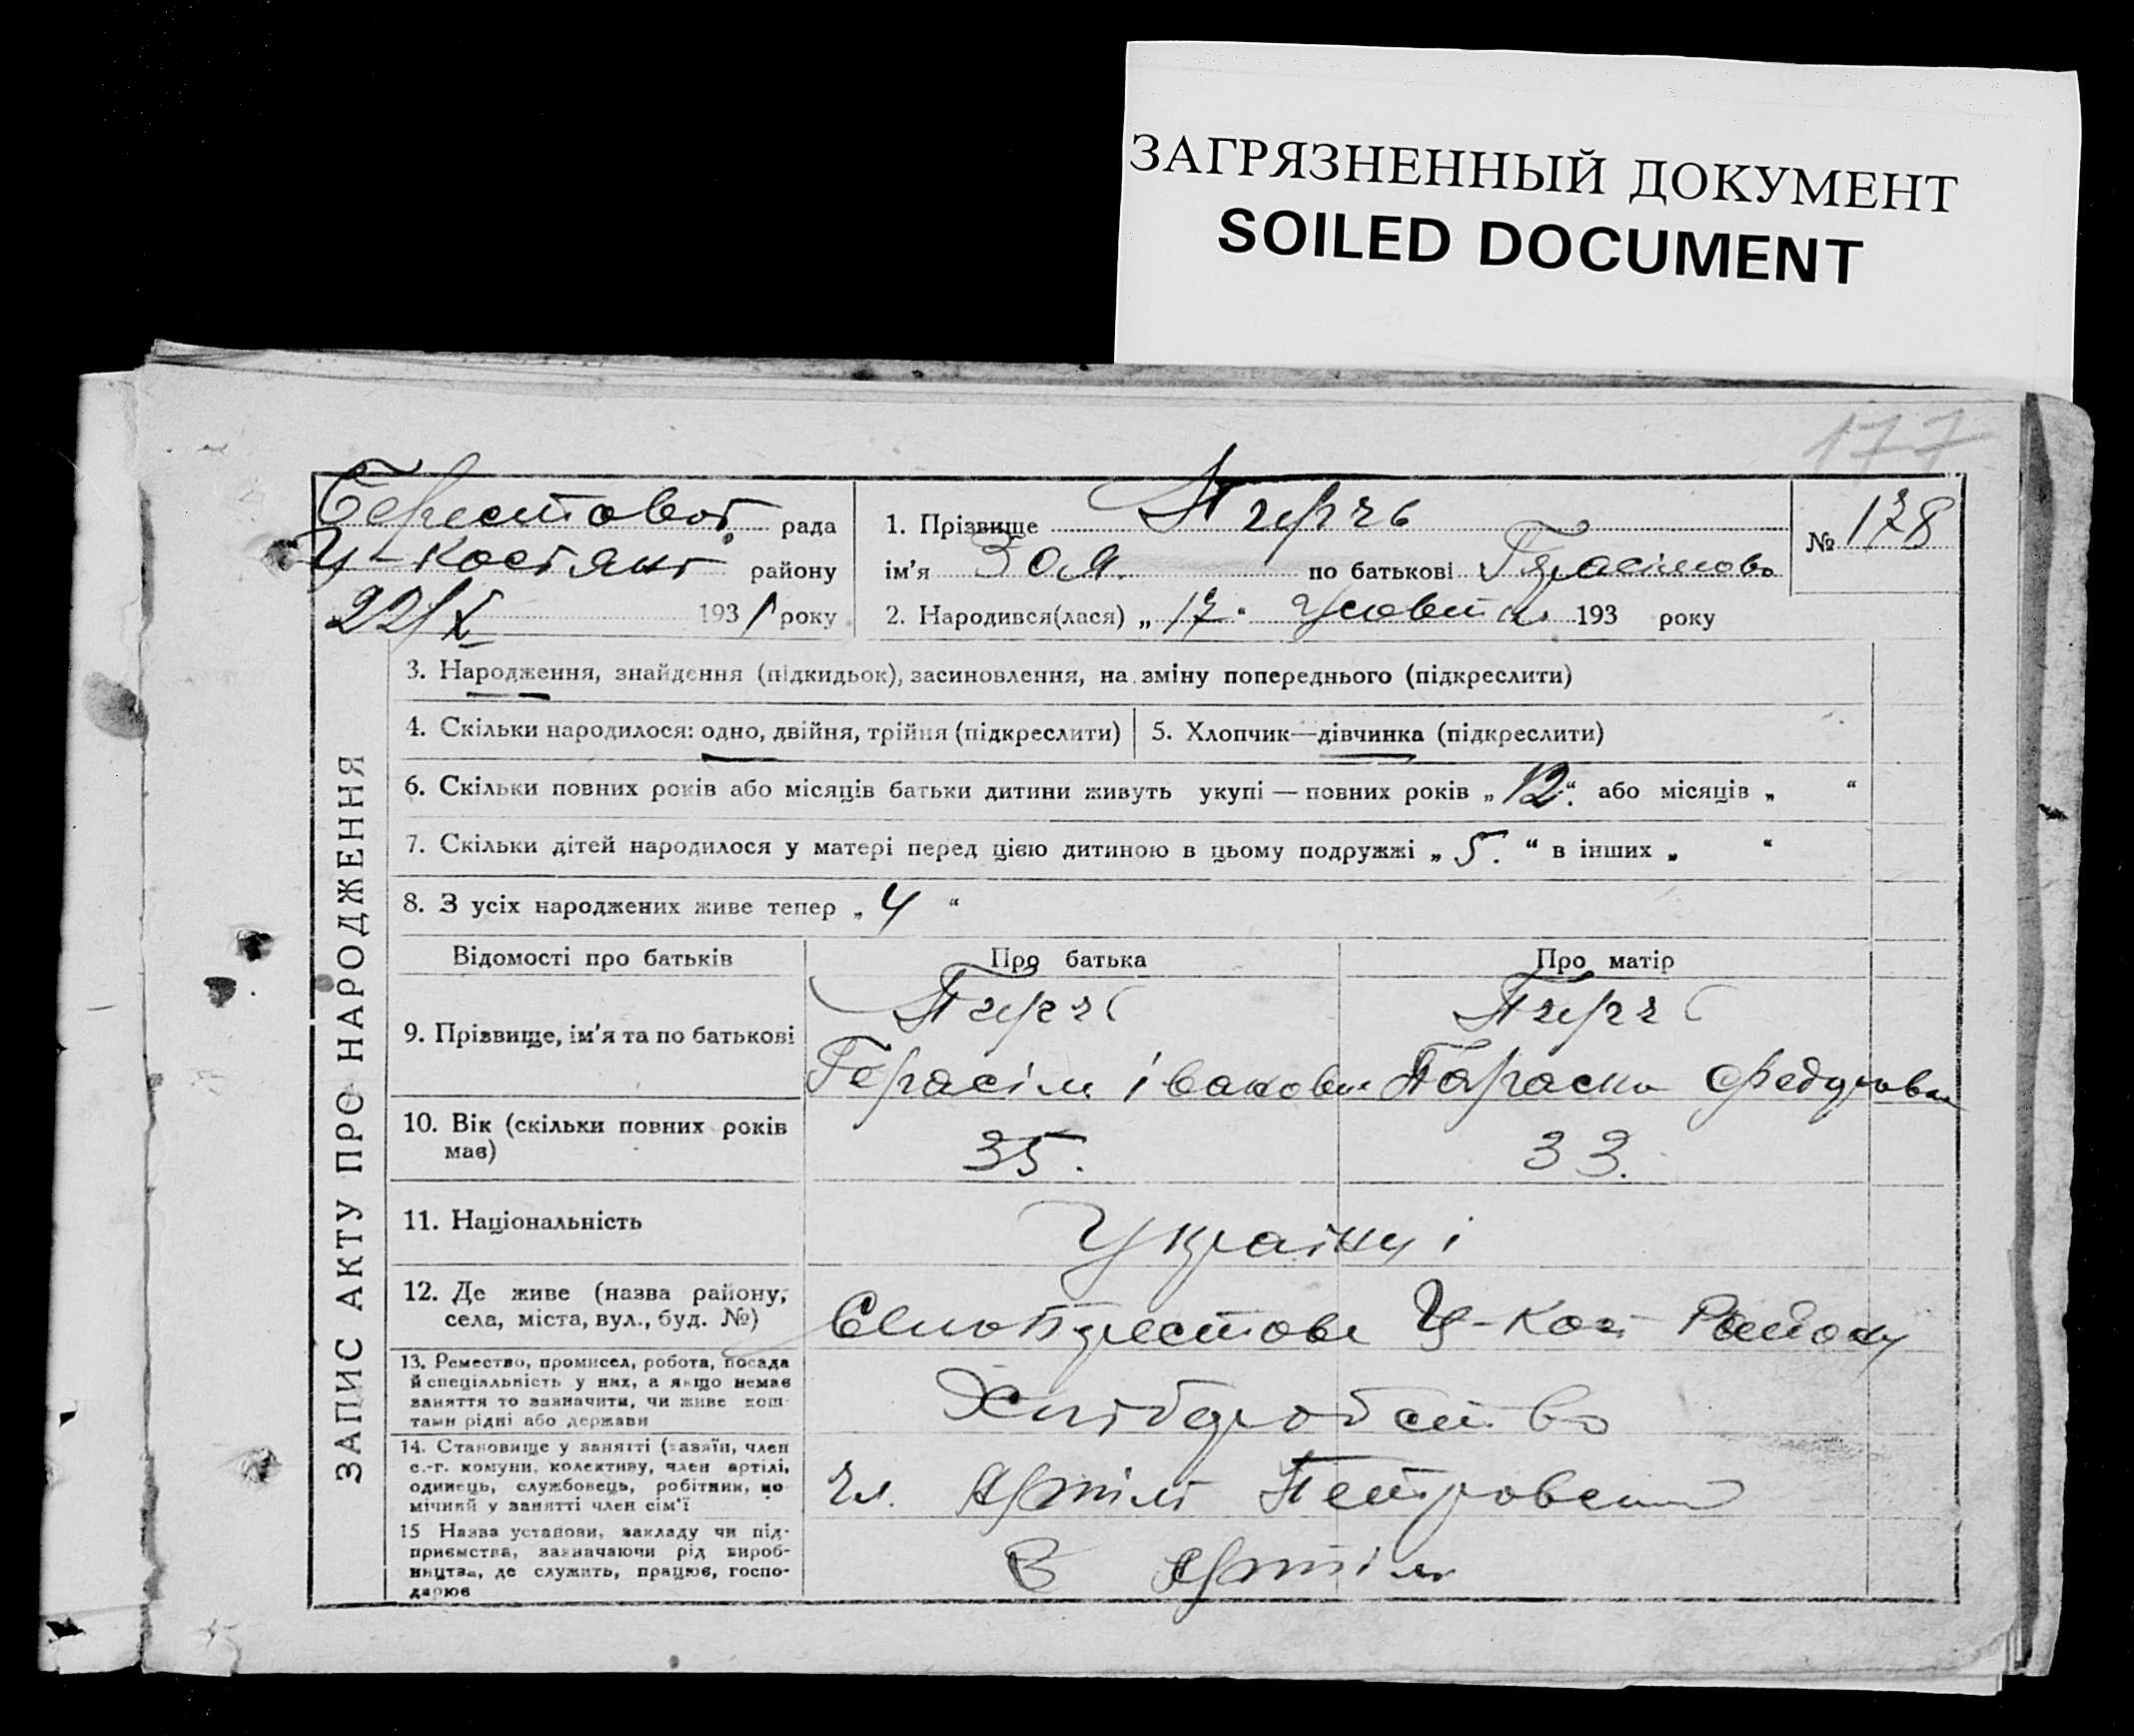 ЗАГРЯЗНЕННЫЙ ДОКУМЕНТ
SOILED DOCUMENT
177
Берестової рада
Ц-Костянт району
22/X 1931 року
1. Прізвище
ім'я Зоя по батькові Герасімово
2. Народився(лася) „17“ Жовтня 193 року
№ 178
ЗАПИС АКТУ ПРО НАРОДЖЕННЯ
3. Народження, знайдення (підкидьок), засиновлення, на зміну попереднього (підкреслити)
4. Скільки народилося: одно, двійня, трійня (підкреслити)
5. Хлопчик—дівчинка (підкреслити)
6. Скільки повних років або місяців батьки дитини живуть укупі — повних років „12“ або місяців „ “
7. Скільки дітей народилося у матері перед цією дитиною в цьому подружжі „5.“ в інших „ “
8. З усіх народжених живе тепер „4“
Відомості про батьків Про батька Про матір
9. Прізвище, ім'я та по батькові
Герасім Іванович Параска Федоровна
10. Вік (скільки повних років має) 35. 33.
11. Національність Українці
12. Де живе (назва району, села, міста, вул., буд. №) Ц-Кост Району
13. Ремество, промисел, робота, посада й спеціяльність у них, а якщо немає заняття то зазначити, чи живе коштами рідні або держави Хліборобство
14. Становище у занятті (хазяїн, член с.-г. комуни, колективу, член артілі, одинець, службовець, робітник, помічний у занятті член сім'ї Чл. Артілі
15 Назва установи, закладу чи підприємства, зазначаючи рід виробництва, де служить, працює, господарює В Артілі